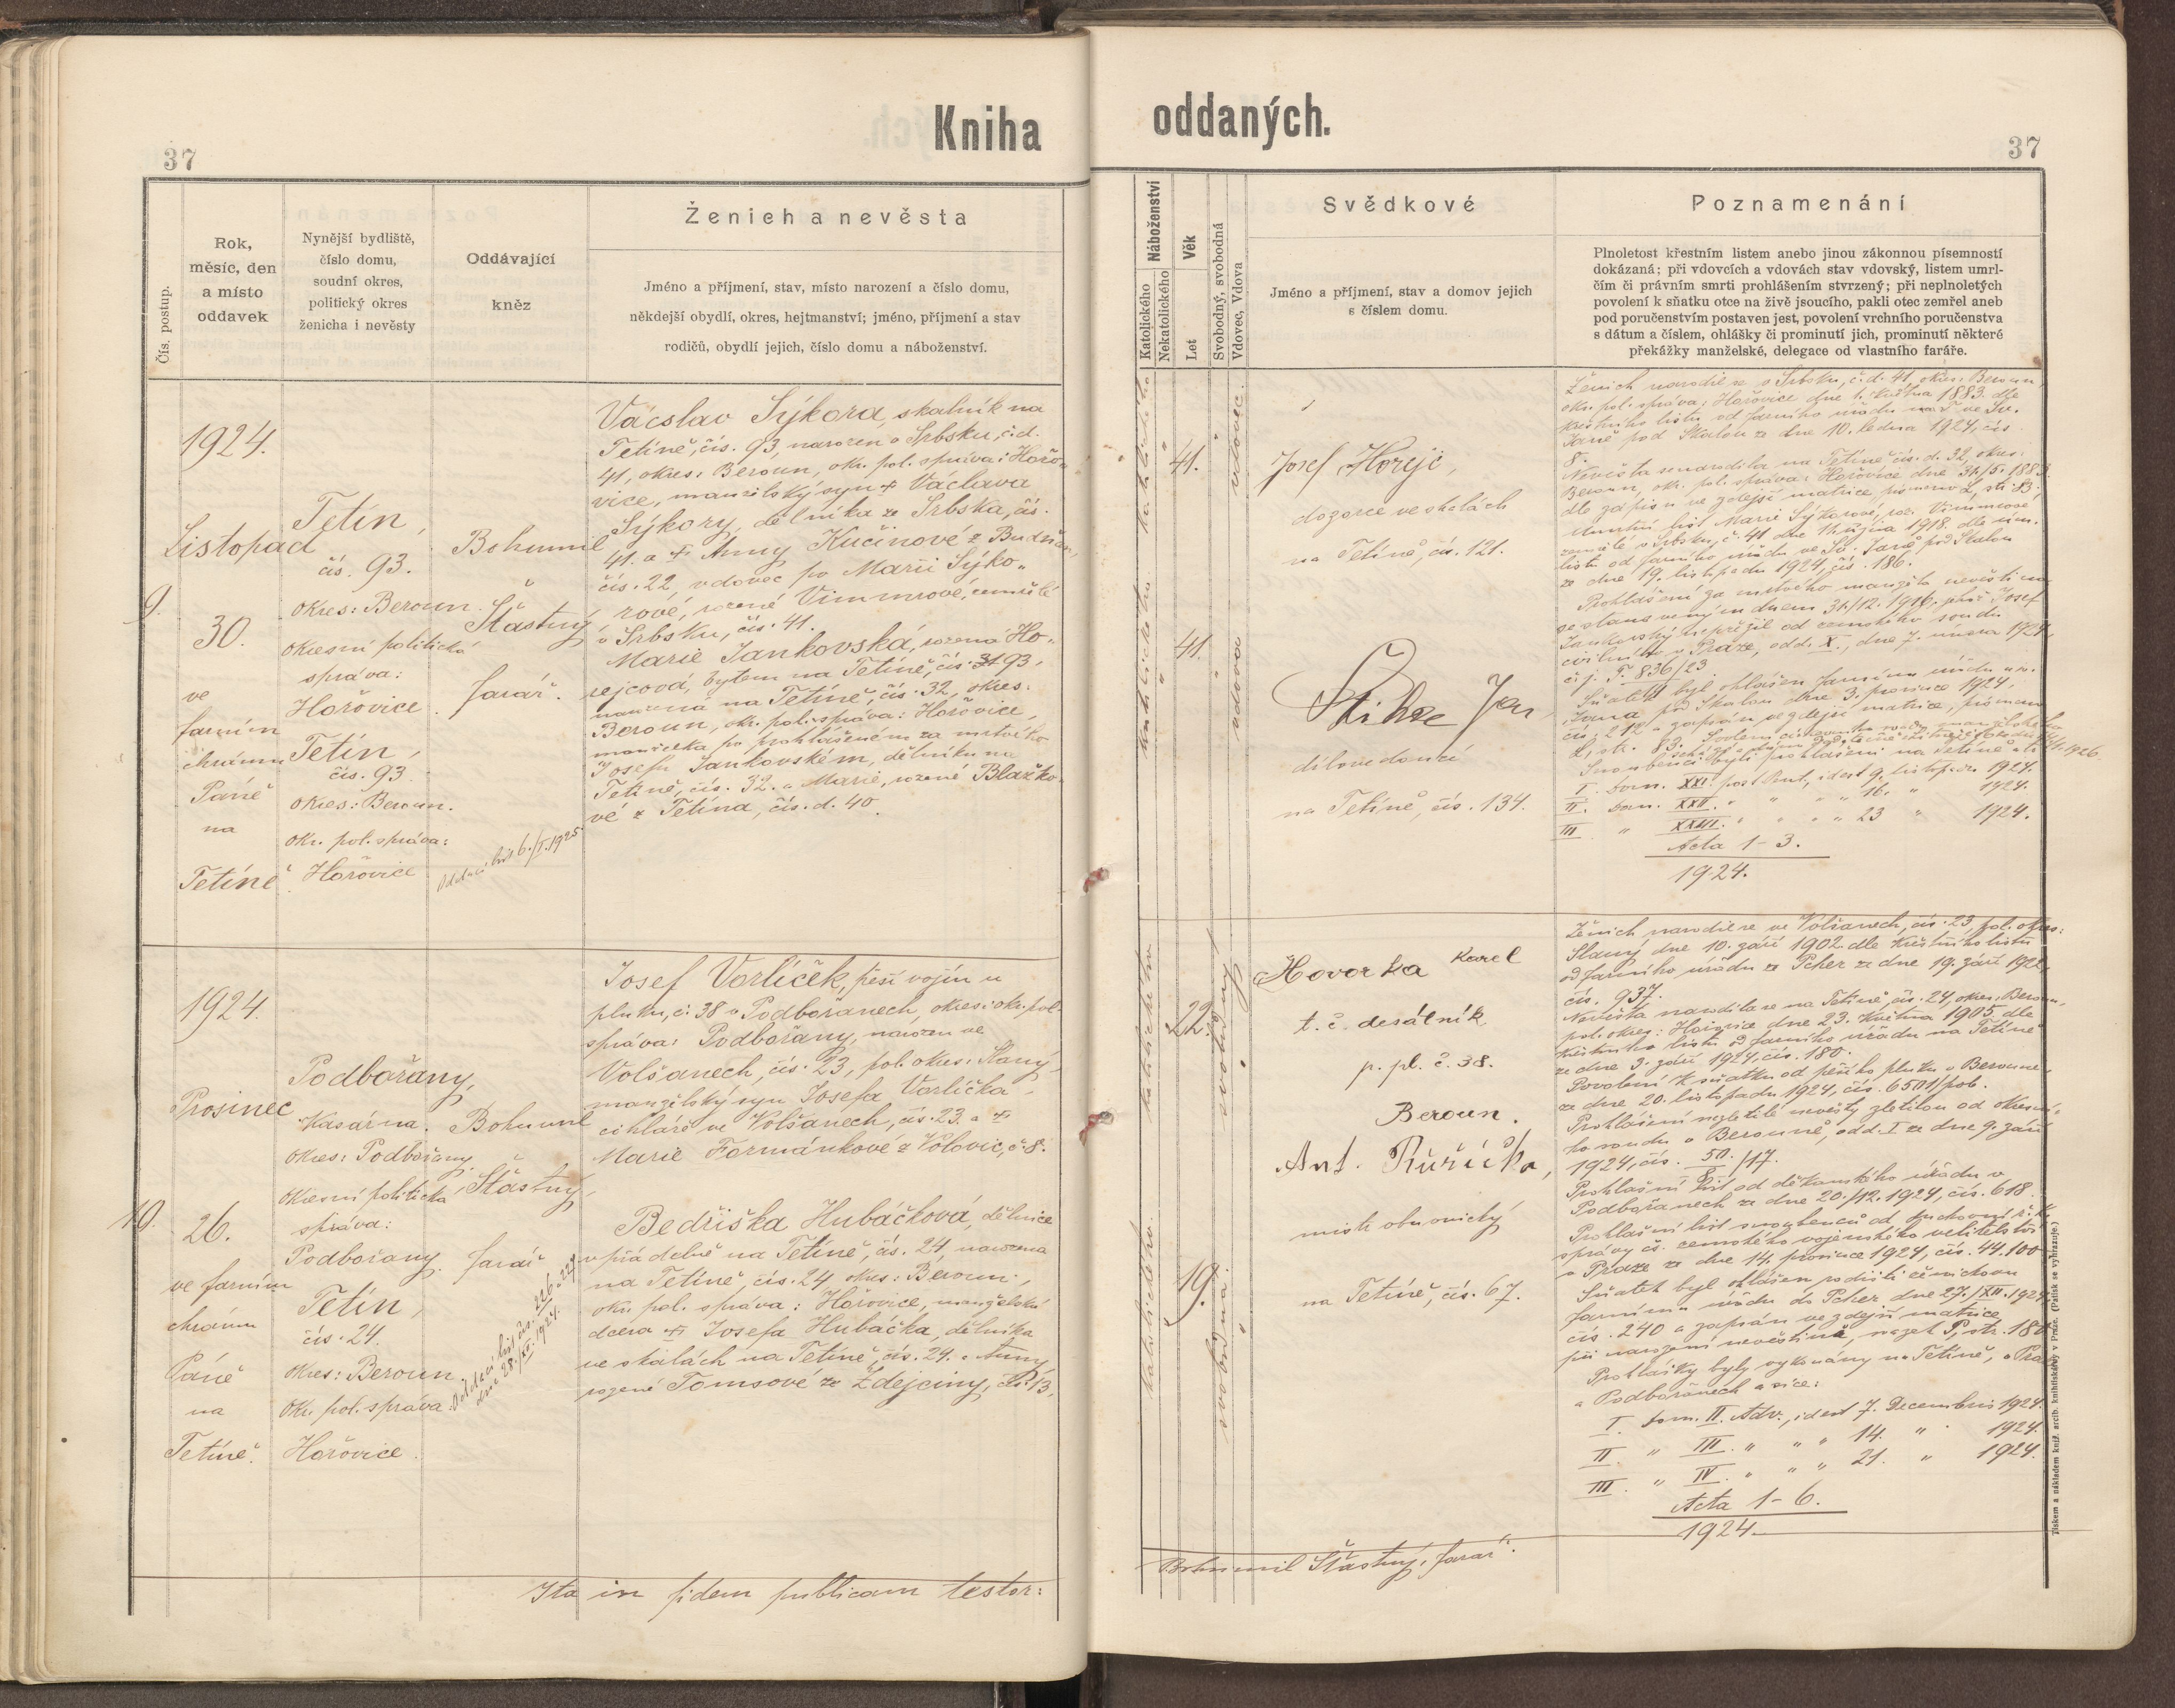 37
Kniha
oddaných.
37
Čís. postup.
Rok,
měsíc, den
a místo
oddavek
Nynější bydliště,
číslo domu,
soudní okres,
politický okres
ženicha i nevěsty
Oddávající
kněz
Ženich a nevěsta
Jméno a příjmení, stav, místo narození a číslo domu,
někdejší obydlí, okres, hejtmanství; jméno, příjmení a stav
rodičů, obydlí jejich, číslo domu a náboženství.
Náboženství
Katolického
Nekatolického
Věk
Let
Svobodný, svobodná
Vdovec, Vdova
Svědkové
Jméno a příjmení, stav a domov jejich
s číslem domu.
Poznamenání
Plnoletost křestním listem anebo jinou zákonnou písemností
dokázaná; při vdovcích a vdovách stav vdovský, listem umrl-
čím či právním smrti prohlášením stvrzený; při neplnoletých
povolení k sňatku otce na živě jsoucího, pakli otec zemřel aneb
pod poručenstvím postaven jest, povolení vrchního poručenstva
s dátum a číslem, ohlášky či prominutí jich, prominutí některé
překážky manželské, delegace od vlastního faráře.
9.
1924.
Listopad
30.
ve
farním
chrámu
Páně
na
Tetíně
Tetín,
čís. 93.
okres: Beroun.
okresní politická
správa:
Hořovice.
Tetín,
čís. 93
okres: Beroun.
okr. pol. správa:
Hořovice
Bohumil
Šťastný,
farář.
Oddací list 6./I. 1925.
Vácslav Sýkora, skalník na
Tetíně, čís. 93, narozen v Srbsku, č. d.
41, okres: Beroun, okr. pol. správa: Hořo-
vice, manželský syn † Václava
Sýkory, dělníka ze Srbska, čís.
41. a † Anny Kučinové z Budňan,
čís. 22, vdovec po Marii Sýko-
rové, rozené Vimmrové, zemřelé
v Srbsku, čís. 41.
Marie Jankovská, rozená Ho-
rejcová, bytem na Tetíně, čís. 93,
narozena na Tetíně, čís. 32, okres:
Beroun, okr. pol. správa: Hořovice,
manželka po prohlášeném za mrtvého
Josefu Jankovském, dělníku na
Tetíně, čís. 32. a Marie, rozené Blažko-
vé z Tetína, čís. d. 40.
katolického
41.
vdovec.
katolického
41.
vdova
Josef Horejc,
dozorce ve skalách
na Tetíně, čís. 121.
Jan
dílovedoucí
na Tetíně, čís. 134.
Ženich narodil se v Srbsku, č. d. 41, okres: Beroun,
okr. pol. správa: Hořovice dne 1. května 1883. dle
křestního listu od farního úřadu ve Sv.
Janě pod Skalou ze dne 10. ledna 1924, čís.
8.
Nevěsta se narodila na Tetíně čís. d. 32, okres:
Beroun, okr. pol. správa: Hořovice dne 31./5. 1883.
dle zápisu ve zdejší matrice, písmeno L, str. 83,
Úmrtní list Marie Sýkorové, roz. Vimmrové
zemřelé v Srbsku, č. 41 dne 14. října 1918. dle úm.
listu od farního úřadu ve Sv. Janě pod Skalou
ze dne 19. listopadu 1924, čís. 186.
Prohlášení za mrtvého manžela nevěstina
se stanoveným dnem 31./12. 1916. jenž Josef
Jankovský nepřežil od zemského soudu
civilního v Praze, odd. X., dne 7. února 1924,
č. j. T. 836/23
Sňatek byl ohlášen farnímu úřadu u sv.
Jana pod Skalou dne 3. prosince 1924,
čís. 212 a zapsán ve zdejší matrice, písmeno
L, str. 83.
Snoubenci byli prohlášeni na Tetíně a to
I. dom. XXI. post Pent., id est 9. listopadu 1924.
II. dom. XXII. " " " " 16. " 1924.
III. " XXIII. " " " " 23 " 1924.
Acta 1-3.
1924.
10.
1924.
Prosinec
26.
ve farním
chrámu
Páně
na
Tetíně.
Podbořany,
Kasárna.
okres: Podbořany.
okresní politická
správa:
Podbořany.
Tetín,
čís. 24.
okres: Beroun.
okr. pol. správa:
Hořovice.
Bohumil
Šťastný,
farář
Oddací list čís. 226 a 227
dne 28./XII. 1924.
Josef Vorlíček, pěší vojín u
pluku, č. 38 v Podbořanech, okres: okr. pol.
správa: Podbořany, narozen ve
Volšanech, čís. 23, pol. okres: Slaný,
manželský syn Josefa Vorlíčka,
cihláře ve Volšanech, čís. 23. a †
Marie Formánkové z Volovic, č. 8.
Bedřiška Hubáčková, dělnice
v přádelně na Tetíně, čís. 24, narozena
na Tetíně, čís. 24 okres: Beroun,
okr. pol. správa: Hořovice, manželská
dcera † Josefa Hubáčka, dělníka
ve skalách na Tetíně, čís. 24. a Anny,
rozené Tomsové ze Zdejciny, čís. 13.
katolického
22.
svobodný
katolického.
19.
svobodná.
Hovorka Karel
t. č. desátník
p. pl. č. 38.
Beroun.
Ant. Růžička,
mistr obuvnický
na Tetíně, čís. 67.
Ženich narodil se ve Volšanech, čís. 23, pol. okres:
Slaný dne 10. září 1902. dle křestního listu
od farního úřadu ze Pcher ze dne 19. září 1922,
čís. 937.
Nevěsta narodila se na Tetíně, čís. 24, okres: Beroun,
pol. okres: Hořovice dne 23. května 1905. dle
křestního listu od farního úřadu na Tetíně
ze dne 3. září 1924, čís. 180.
Povolení k sňatku od pěšího pluku v Berouně,
ze dne 20. listopadu 1924, čís. 6501/pob.
Prohlášení nezletilé nevěsty zletilou od okresní-
ho soudu v Berouně, odd. I ze dne 9. září
1924, čís. 50./17.
Prohlašní list od děkanského úřadu v
Podbořanech ze dne 20./12. 1924, čís. 618.
Prohlašní list snoubenců od duchovní
správy čs. zemského vojenského velitelství
v Praze ze dne 14. prosince 1924, čís. 44.100
Sňatek byl ohlášen rodišti ženichovu
farnímu úřadu do Pcher dne 27./XII. 1924
čís. 240 a zapsán ve zdejší matrice
při narození nevěstině, nazet P, str. 180
Prohlášky byly vykonány na Tetíně, v Praze
a Podbořanech a sice:
I. dom. II. Adv., id est 7. Decembris 1924.
II " III. " " " 14. " 1924.
III. " IV. " " " 21. " 1924.
Acta 1-6.
1924.
Ita in fidem publicam testor:
Bohumil Šťastný, farář.
Tiskem a nákladem kníž. arcib. knihtiskárny v Praze. (Patisk se vyhrazuje.)